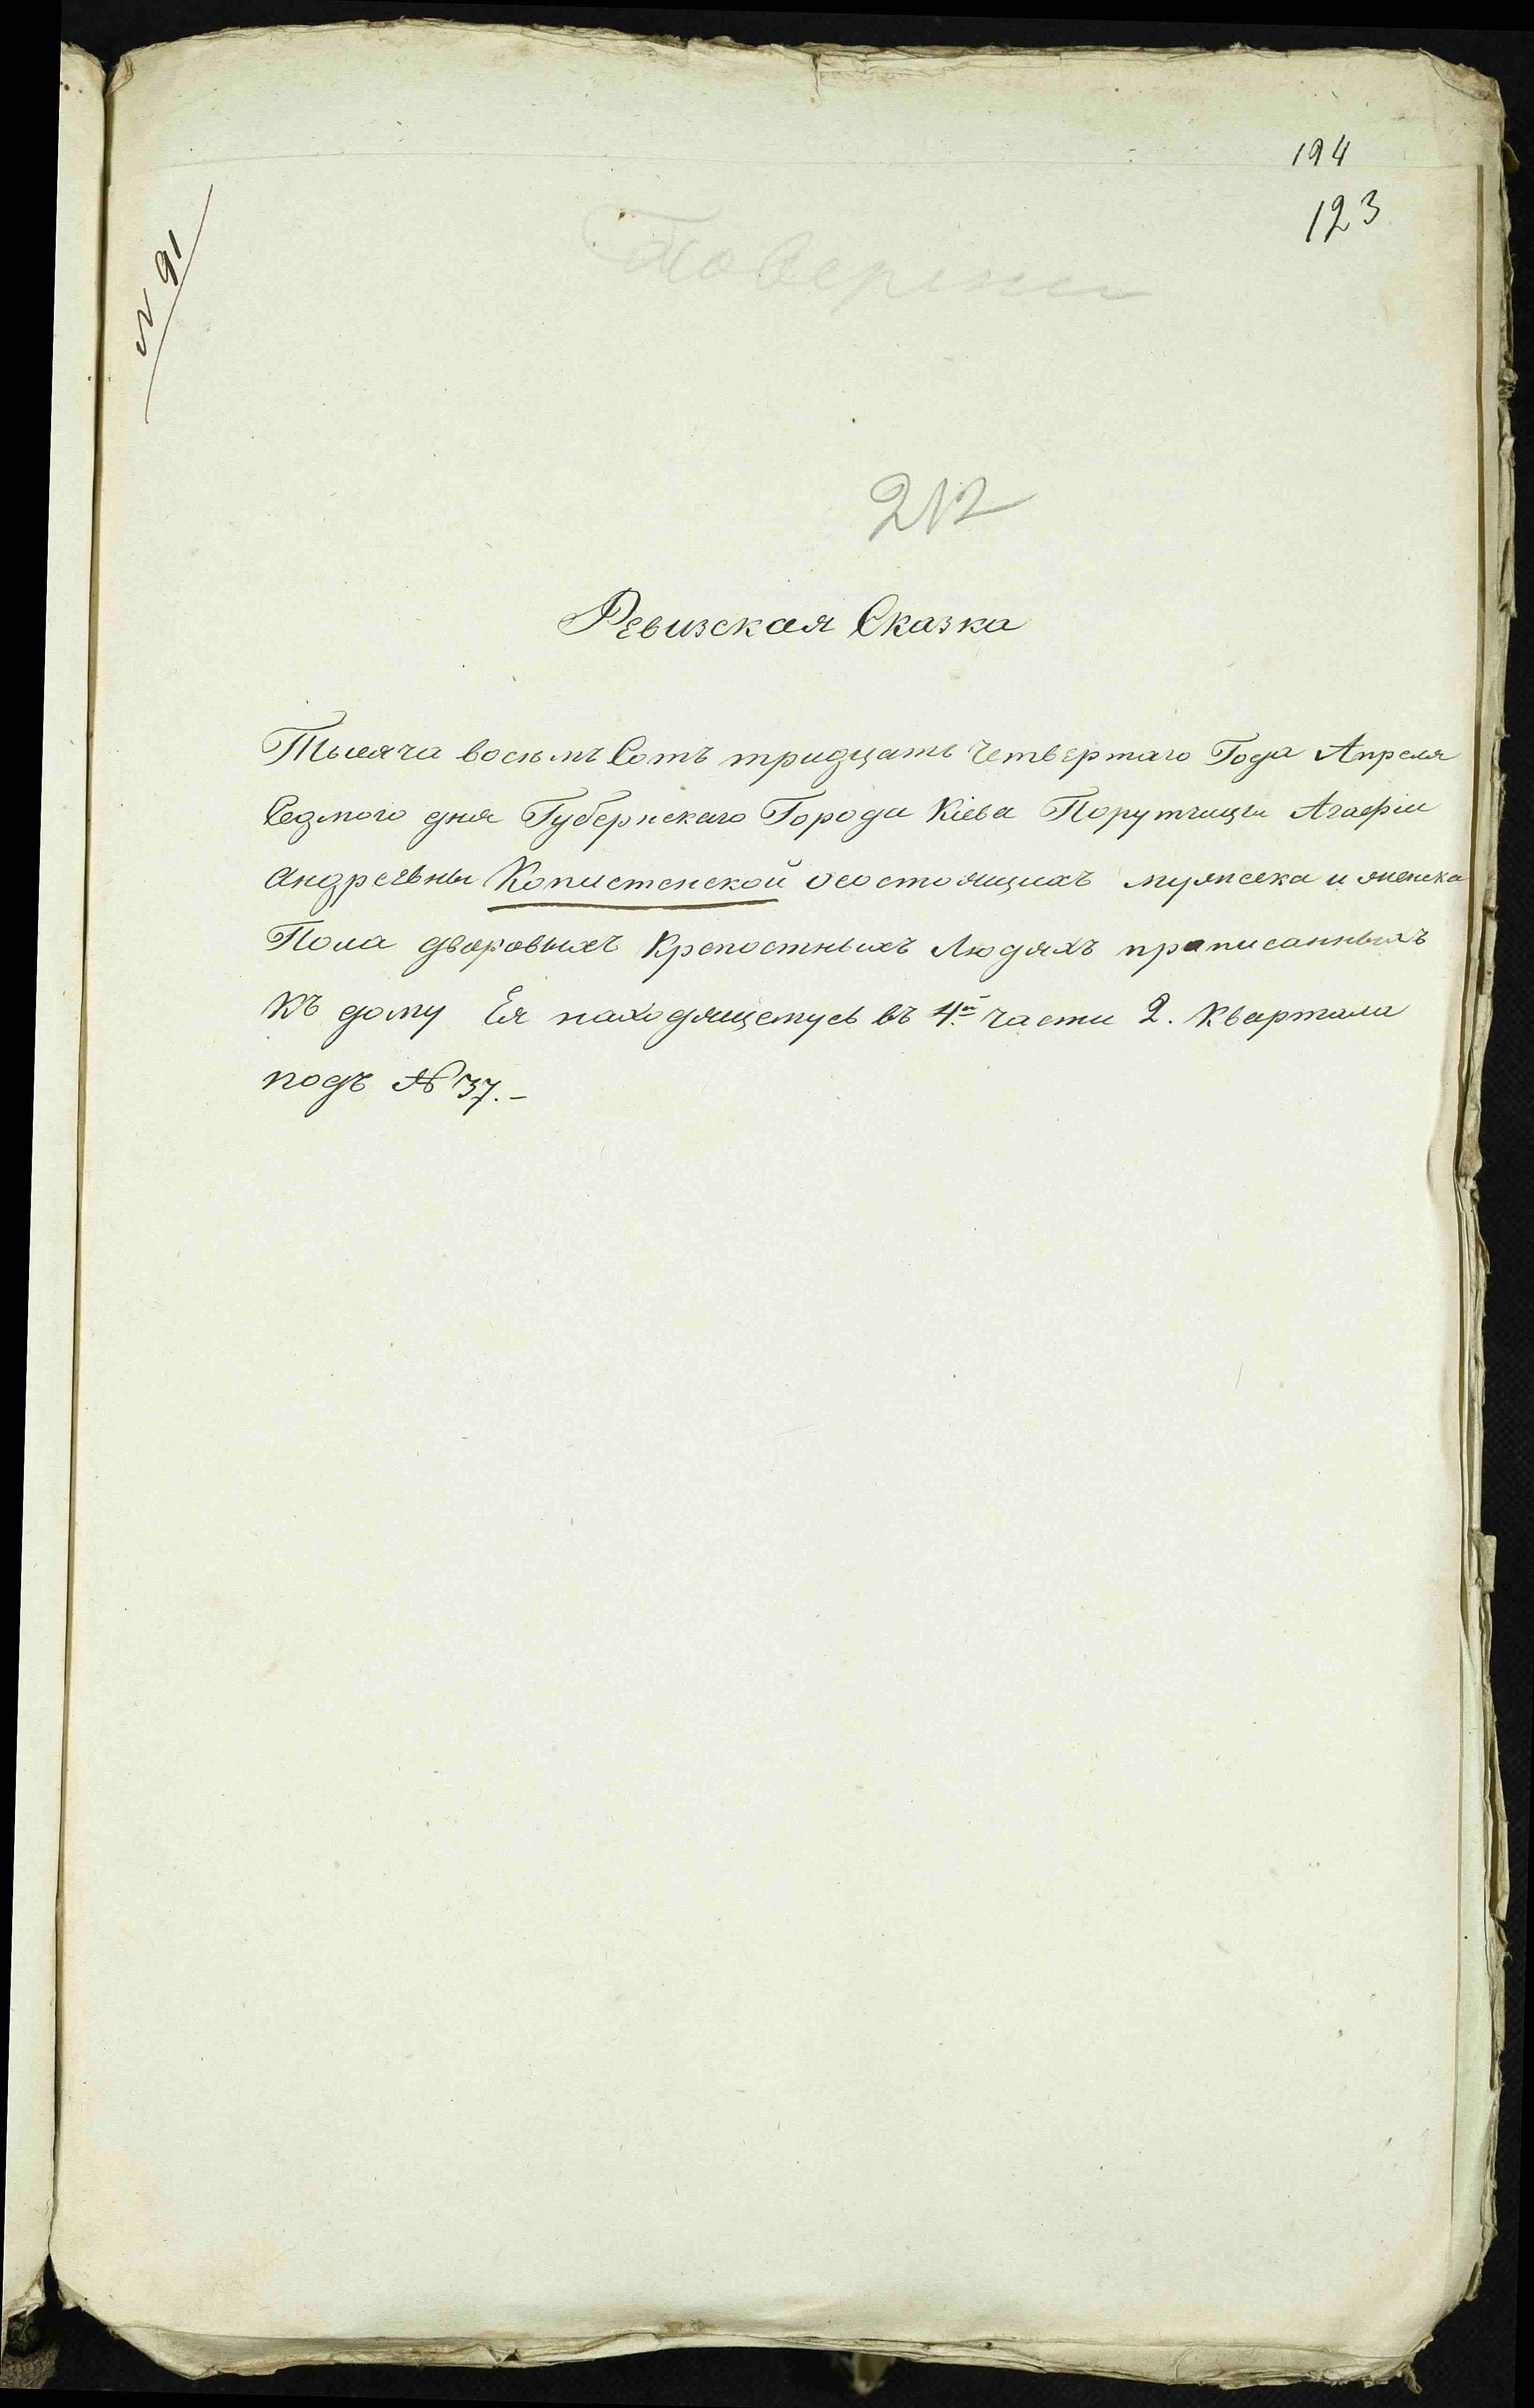 194
123
N 91
212
Ревизская Сказка
Тысяча восемъ Сотъ тридцать Четвертаго Года Апреля
Седмого дня Губернскаго Города Кіева Порутчицы Агафіи
Андреевны Кописте́нской осостоящихъ мужеска и женска
Пола дворовыхъ Крепостныхъ Людяхъ прописанныхъ
Къ дому Ея находящемусь въ 4й. части 2. Квартала
подъ № 37.-